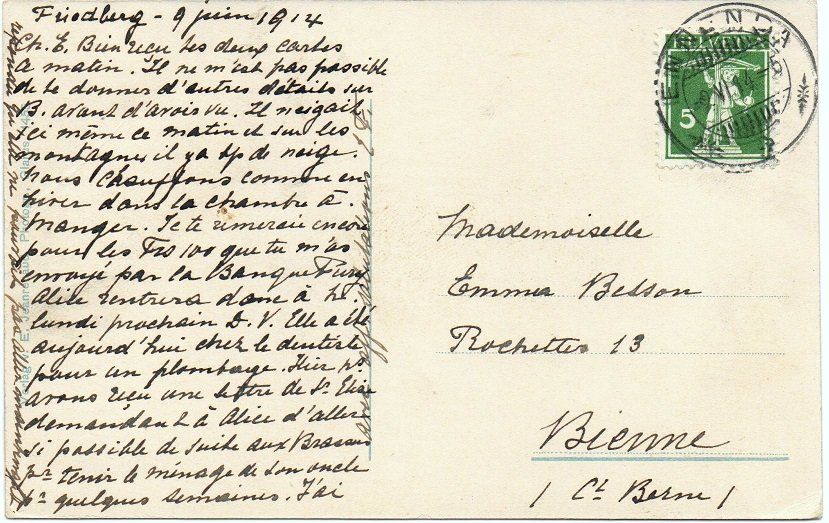 Friedberg - 9 juin 1914
Ch. E. Bien reçu tes deux cartes
ce matin. Il ne m'est pas possible
de te donner d'autres détails sur
B. avant d'avoir vu. Il neigeait
ici même ce matin et sur les
montagnes il y a bp de neige.
Nous chauffons comme en
hiver dans la chambre à
manger. Je te remercie encore
pour les Frs 100 que tu m'as
envoyé par la Banque
Alice rentrera donc à
lundi prochain D. V. Elle a été
aujourd'hui chez le dentiste
pour un plombage. Hier ns.
avons reçu une lettre de Sr. Elise
demandant à Alice d'aller
si possible de suite aux Brassus
pr. tenir le ménage de son oncle
pr. quelques semaines. J'ai
répondu qu'elle ne pourrait pas aller maintenant
ENNENDA
9.VI.14
5
Mademoiselle
Emma Besson
Rochettes 13
Bienne
/ Ct. Berne /